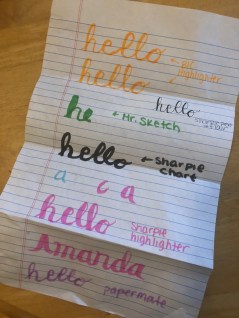 hello ← gel highlighter
hello
he ← Mr. Sketch
hello
hello ← sharpie chart
a c a
hello sharpie highlighter
Amanda
hello papermate